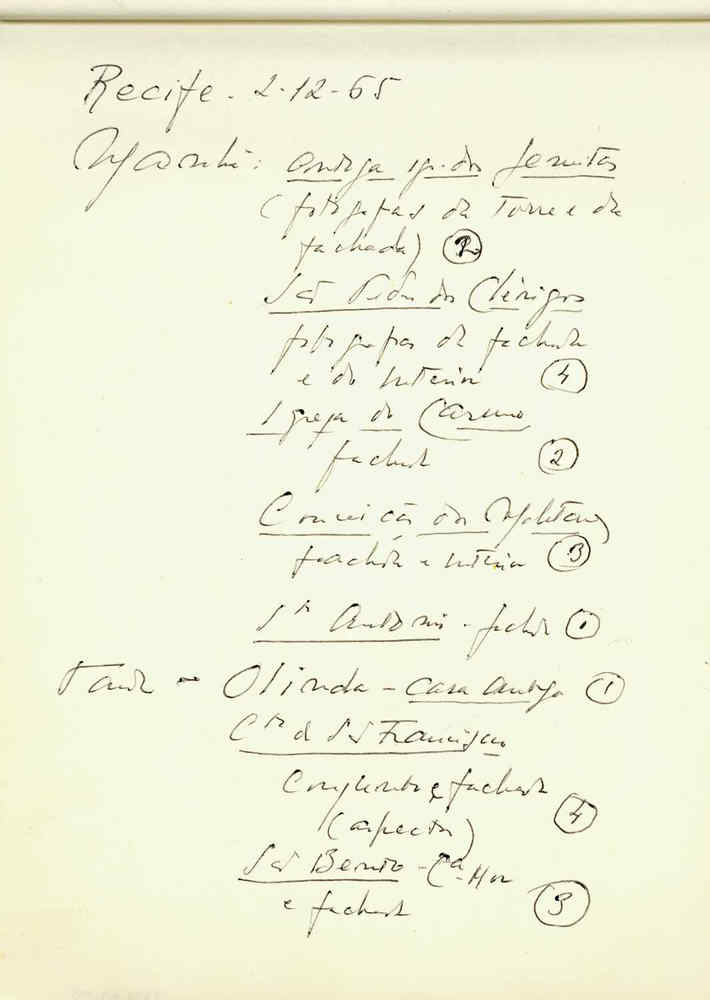 Recife - 2-12-65
Manhã: antiga ig. dos Jesuitas
(fotografias da torre e da
fachada) 2
São Pedro dos Clérigos
fotografias da fachada
e do interior 4
Igreja do Carmo
fachada 2
Conceição dos Militares
fachada e interior 3
Sto Antonio - fachada 1
Tarde - Olinda - casa antiga 1
Cto de São Francisco
Conjunto e fachada
(aspectos) 4
São Bento - Ca - Mor
e fachada 3